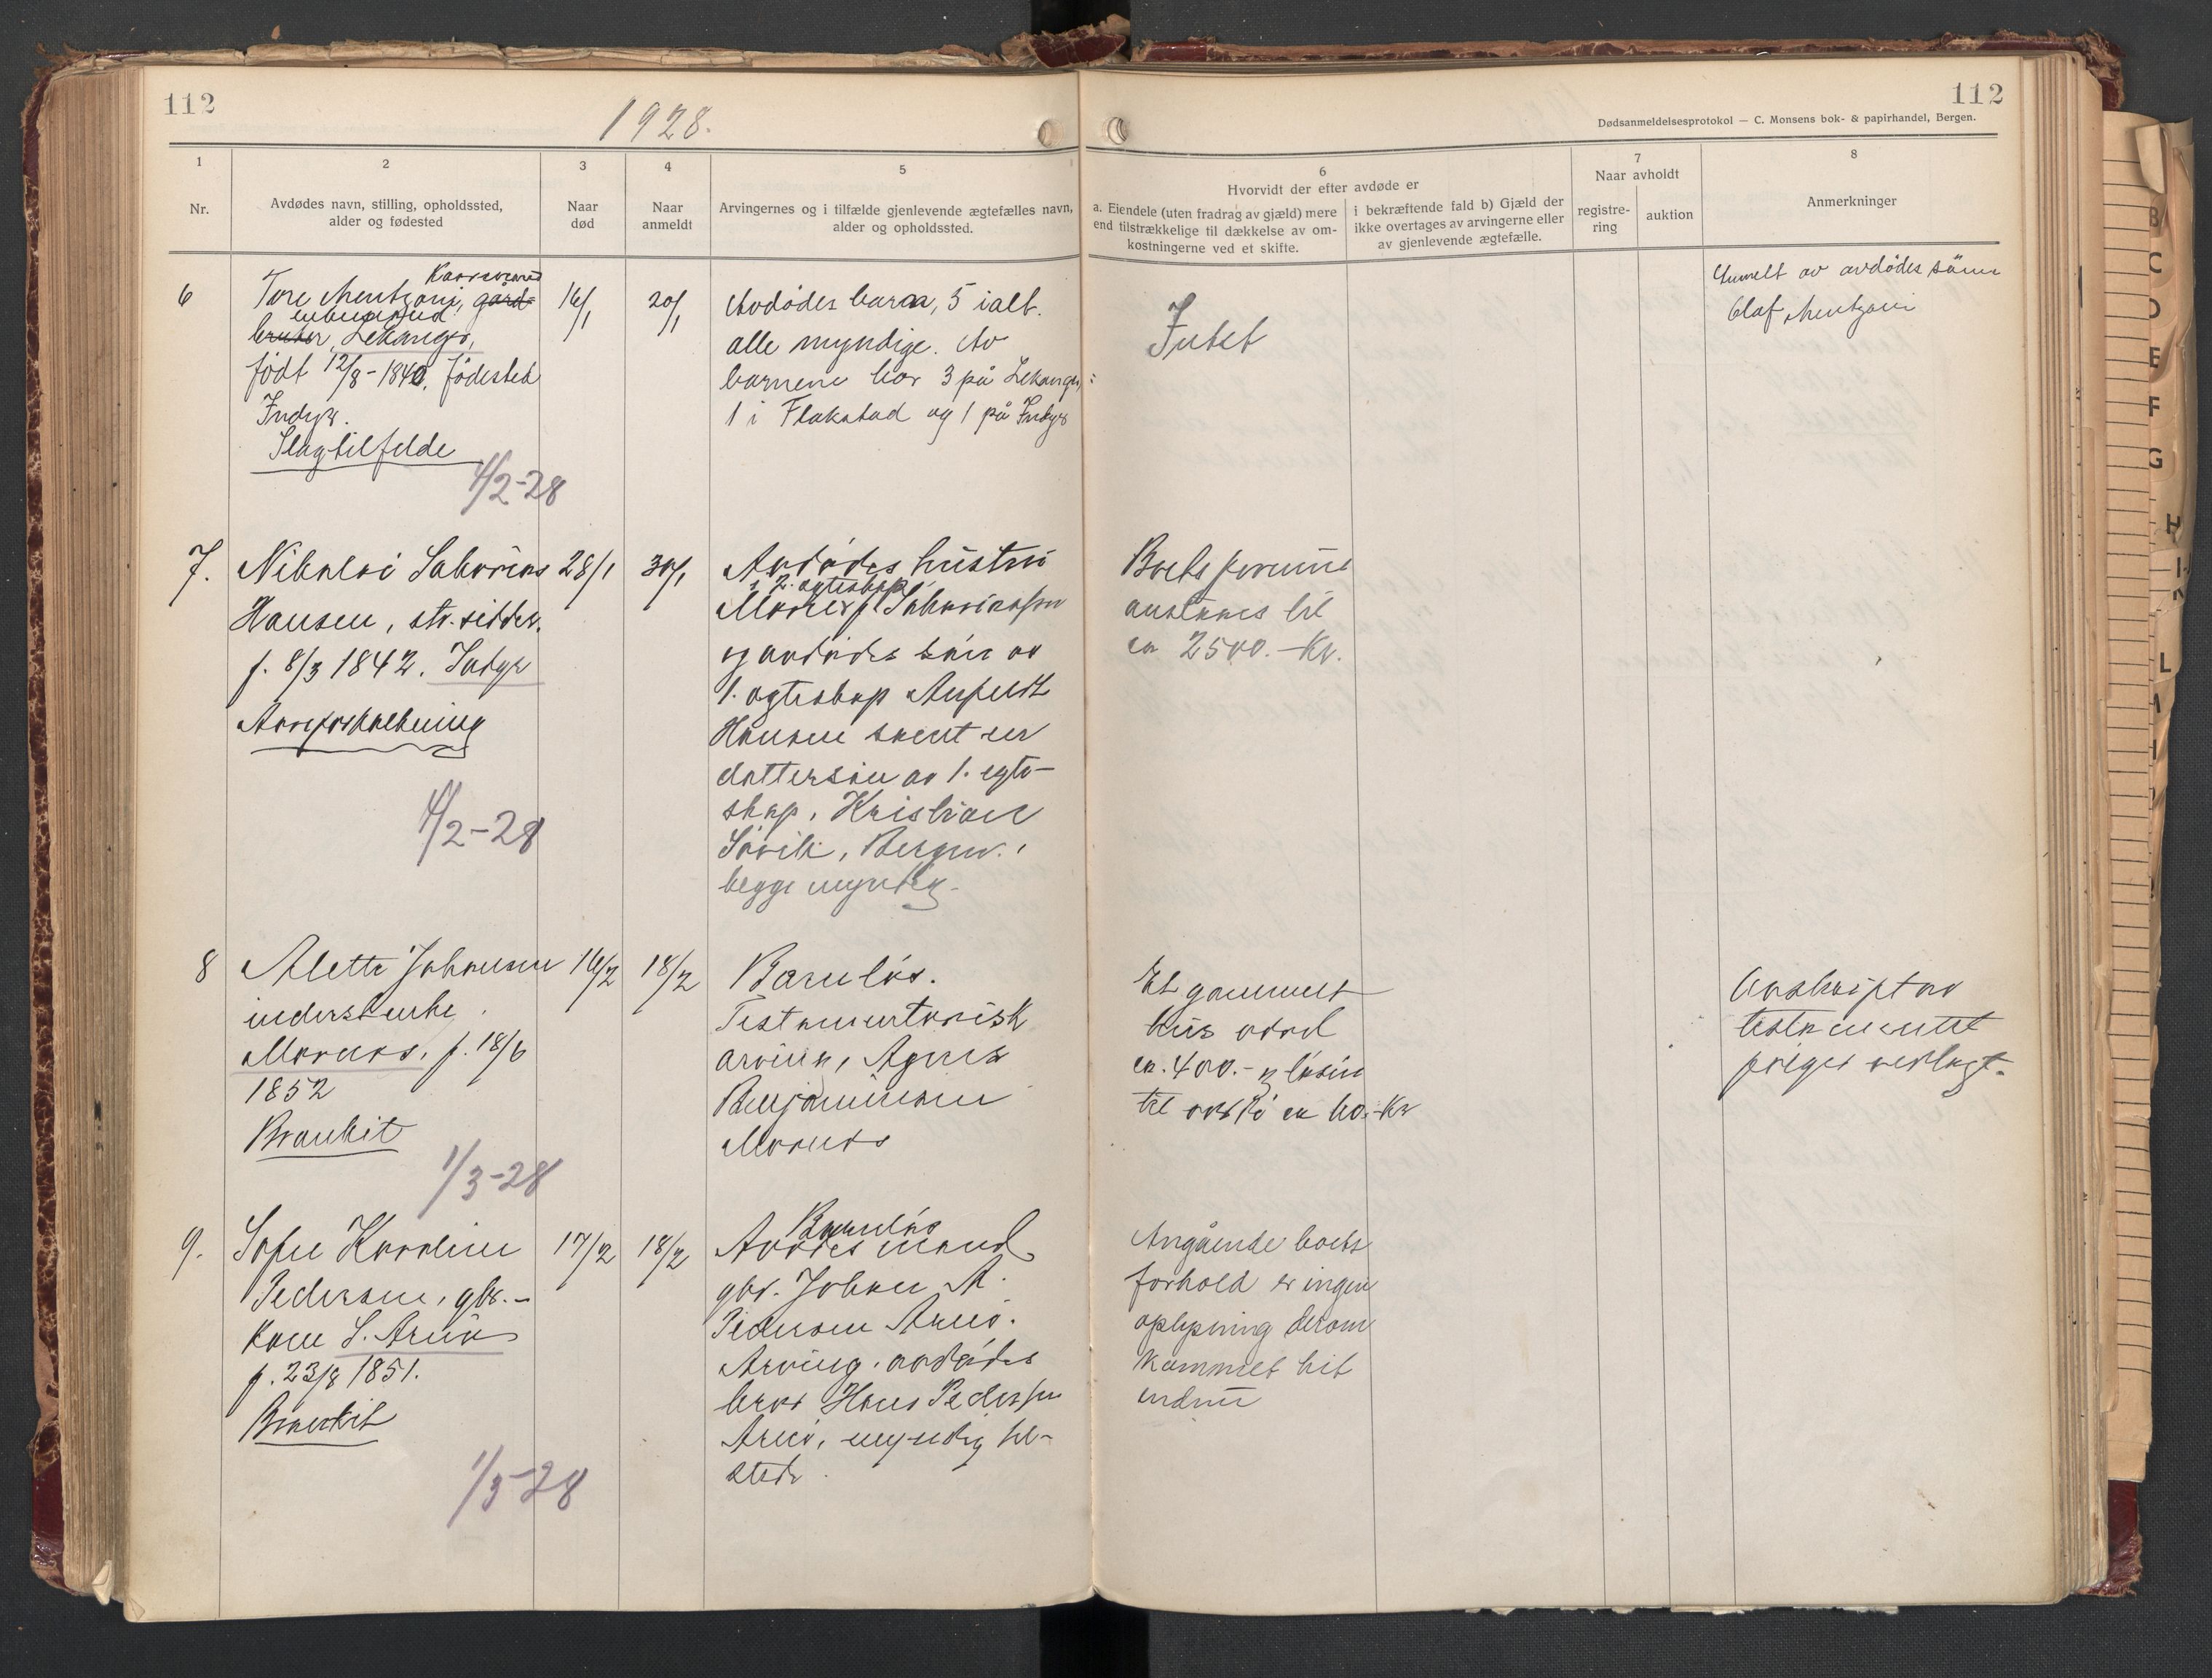 112
1928.
112
Dødsanmeldelsesprotokol — C. Monsens bok- & papirhandel, Bergen.
1
Nr.
2
Avdødes navn, stilling, opholdssted,
alder og fødested
3
Naar
død
4
Naar
anmeldt
5
Arvingernes og i tilfælde gjenlevende ægtefælles navn,
alder og opholdssted.
6
Hvorvidt der efter avdøde er
a. Eiendele (uten fradrag av gjæld) mere
end tilstrækkelige til dækkelse av om-
kostningerne ved et skifte.
i bekræftende fald b) Gjæld der
ikke overtages av arvingerne eller
av gjenlevende ægtefælle.
7
Naar avholdt
registre-
ring
auktion
8
Anmerkninger
6
Kaarmand
Tore Mentzoni, gård-
enkemand
bruker, Lekanger,
født 12/8-1840, fødested
Indyr.
Slagtilfelde
4/2-28
16/1
20/1
Avdødes barn, 5 ialt.
alle myndige. Av
barnene bor 3 på Lekanger,
1 i Flakstad og 1 på Indyr
Intet
Anmelt av avdødes sönn
Olaf Mentzoni
7.
Nikolai Sakarias
Hansen, str.sidder.
f. 8/3 1842. Indyr
Aareforkalkning
4/2-28
28/1
30/1
Avdødes hustru
i 2. egteskap
f. Sakariassen
og avdødes sön av
1. egteskap Anfeldt
Hansen samt en
dattersön av 1. egte-
skap, Kristian
Sövik, Bergen.
begge myndig.
Boets formue
anslaaes til
ca 2500.- Kr.
8
Alette Johansen
inderstenke
Mornes, f. 18/6
1852
Brankit
1/3-28
16/2
18/2
Barnløs.
Testamentarisk
arving, Agnes
Benjaminsen
Mornes
Et gammelt
hus værd
ca. 400.- og løsøre
til værdi ca 60.- Kr
Avskrift av
testamentet
følger vedlagt.
9.
Sofie Karoline
Pedersen, gbr.-
kone S. Arnø
f. 23/8 1851.
Brankit
1/3-28
17/2
18/2
Barnløs
Avdødes mand
gbr. Johan A.
Pedersen Arnø.
Arving. avdødes
bror Hans Pedersen
Arnø, myndig til-
stede.
Angående boets
forhold er ingen
oplysning derom
kommet hit
endnu